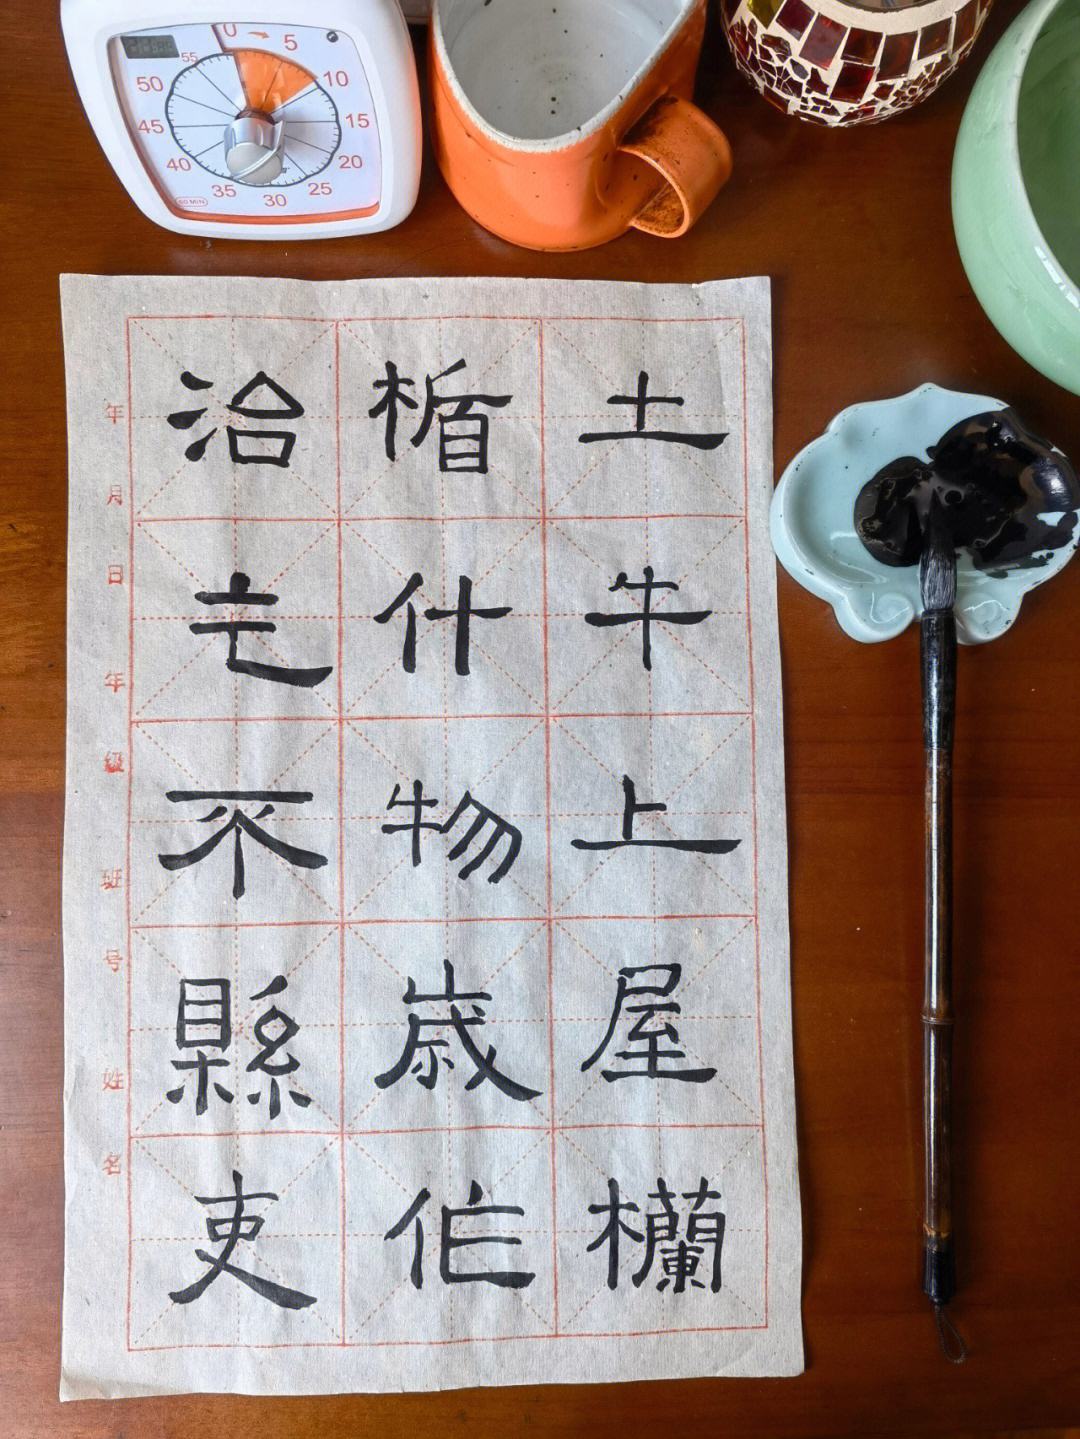 土牛上屋欄
楯什物歲作
治乞不縣吏
年 月 日 年级 班号 姓名
0
5
10
15
20
25
30
35
40
45
50
55
60 MIN